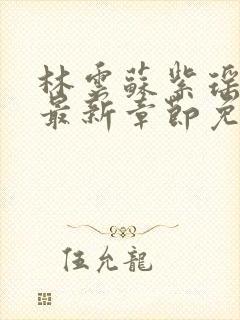 林雲蘇紫瑤
最新章節免
伍允龍